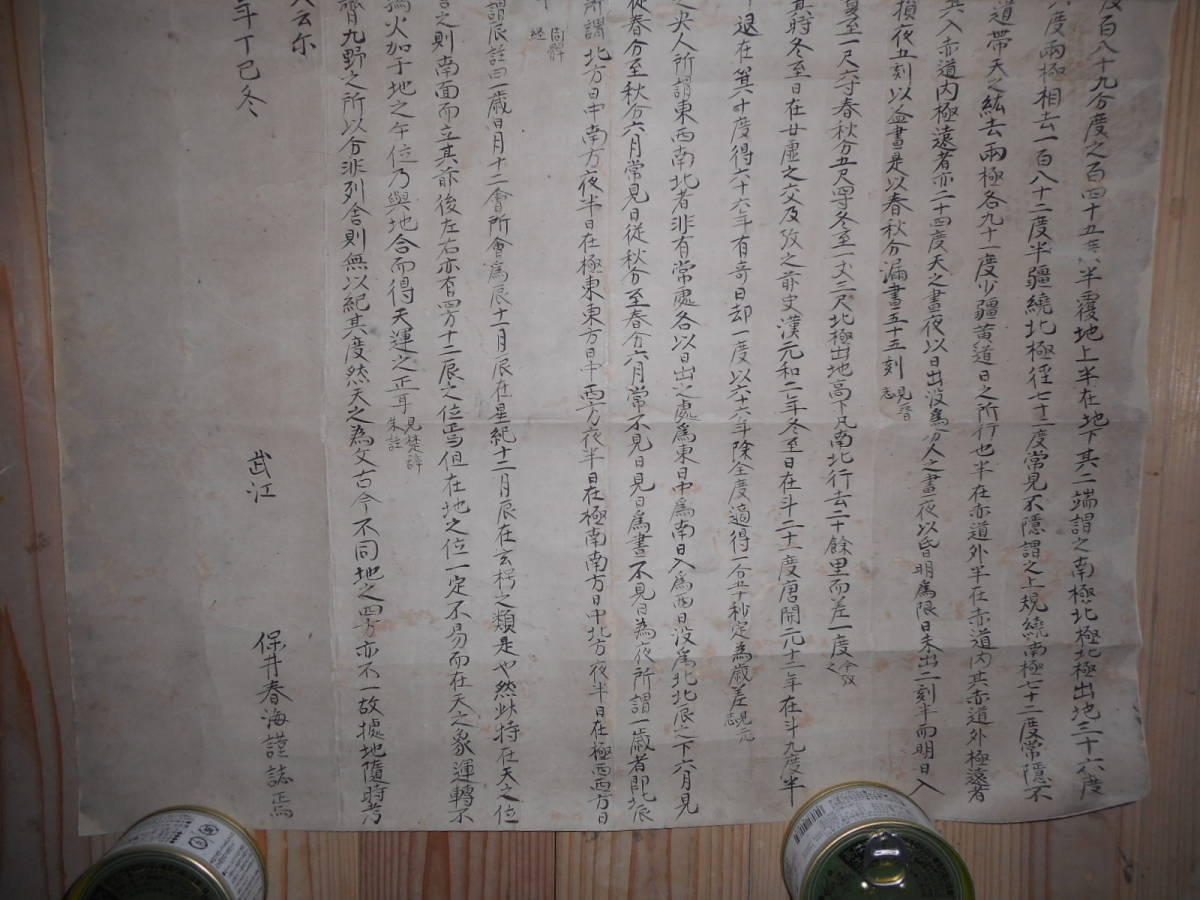 度百八十九分度之百四十五半覆地上半在地下其二端謂之南極北極北極出地三十六度
度兩極相去一百八十二度半疆繞北極徑七十二度常見不隱謂之上規繞南極七十二度常隱不
道帶天之紘去兩極各九十一度少疆黃道日之所行也半在赤道外半在赤道內其赤道外極遠者
其入赤道內極遠者亦二十四度天之晝夜以日出沒爲分人之晝夜以昏明爲限日未出二刻半而明日入
損夜五刻以益晝是以春秋分漏晝五十五刻 見晉志
夏至一尺六寸春秋分五尺四寸冬至一丈三尺北極出地高下凡南北行去二十餘里而差一度 今攷之
其時冬至日在女虛之交及攷之前史漢元和二年冬至日在斗二十一度唐開元十二年在斗九度半
退在箕十度得六十六年有奇日却一度以六十六年除全度適得一分五十秒定為歲差 見元志
之央人所謂東西南北者非有常處各以日出之處爲東日中爲南日入爲西日沒爲北北辰之下六月見
從春分至秋分六月常見日從秋分至春分六月常不見日見日爲晝不見日為夜所謂一歲者即北辰
所謂北方日中南方夜半日在極東東方日中西方夜半日在極南南方日中北方夜半日在極西西方日
周髀經
謂辰註曰一歲日月十二會所會爲辰十一月辰在星紀十二月辰在玄枵之類是也然此特在天之位
言之則南面而立其前後左右亦有四方十二辰之位焉但在地之位一定不易而在天之象運轉不
鶉火加于地之午位乃與地合而得天運之正耳 見楚辭朱註
齊九野之所以分非列舍則無以紀其度然天之為文古今不同地之四方亦不一故據地隨時考
云尓
年丁巳冬
武江
保井春海謹誌焉